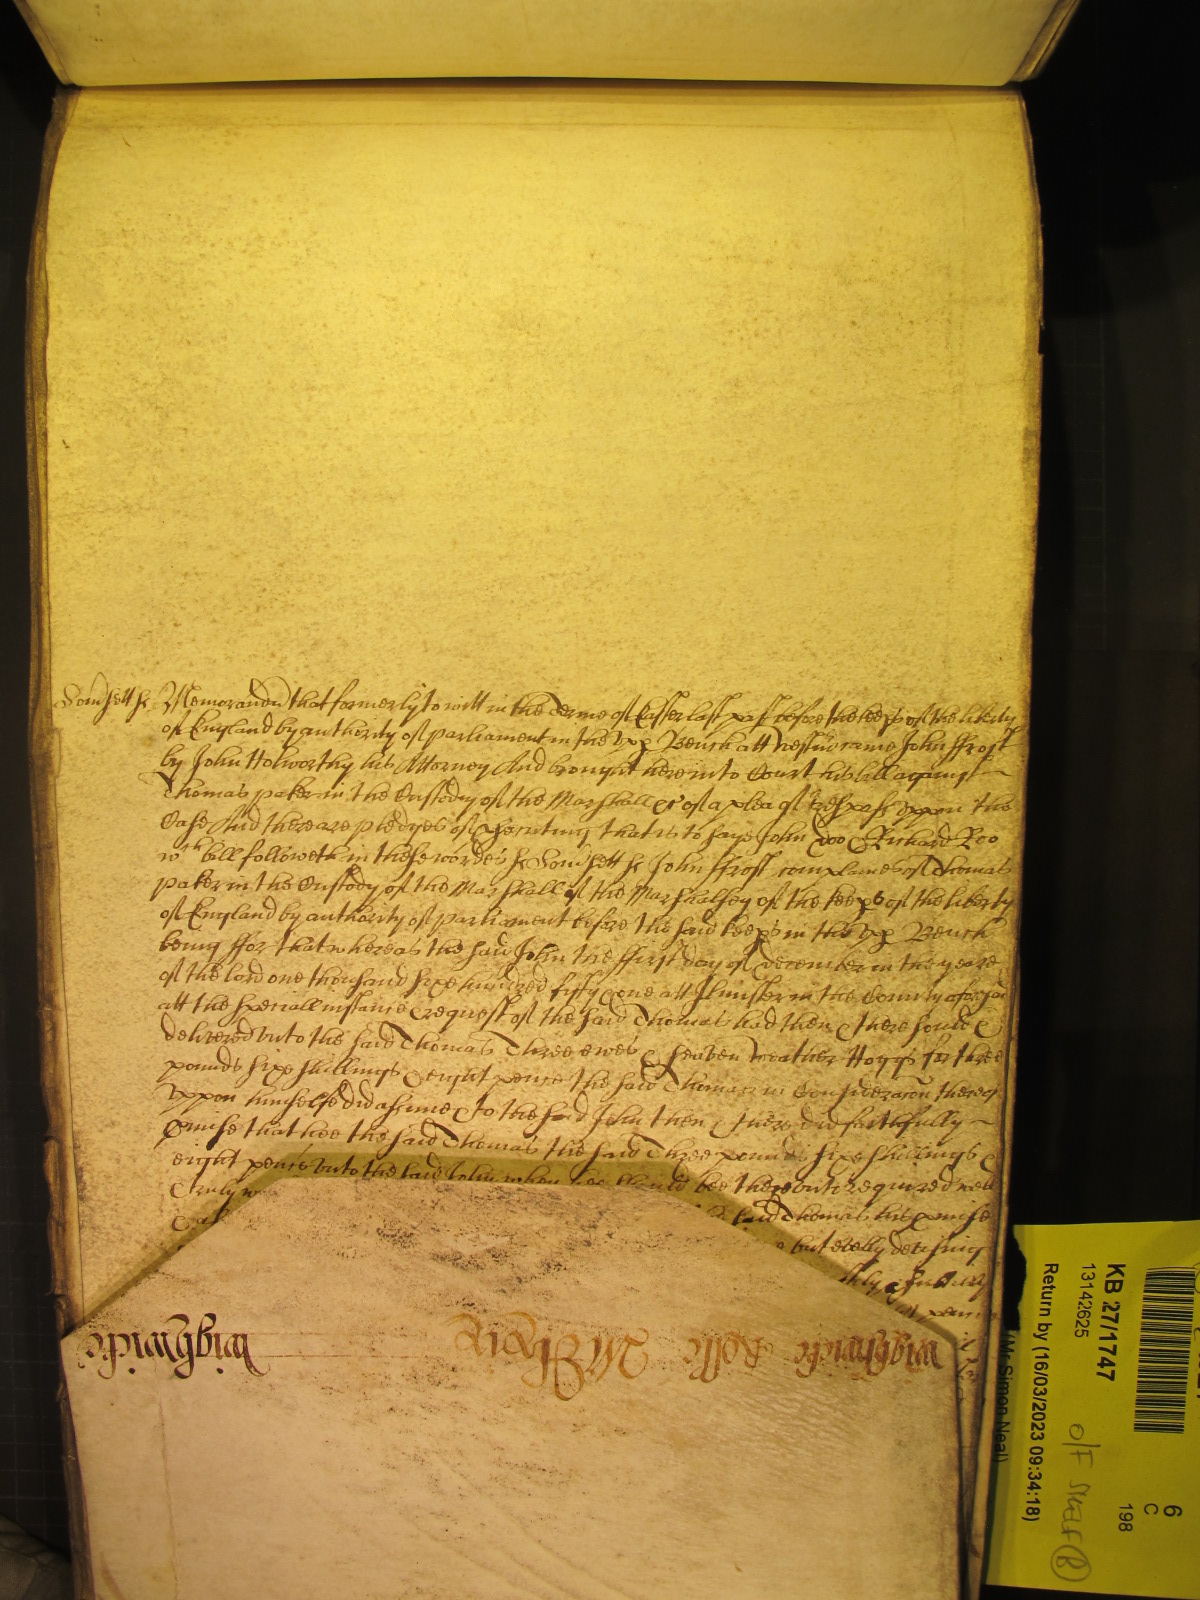 Somsett ss Memorandũ that formerly to witt in the Terme of Easter last past before the keeps of the liberty
of England by authority of parliament in the upp Bench att Westm̃ came John ffrost
by John Holworthy his Attorney And brought here into Court his bill against
Thomas paker in the Custody of the Marshall &c of a plea of Trespass uppon the
Case And there are pledges of psecuting that is to saye John Doo & Richard Roo
wch bill followeth in these wordes ss Somsett ss John ffrost complaines of Thomas
paker in the Custody of the Marshall of the Marshalsey of the keeps of the liberty
of England by authority of parliament before the said keeps in the upp Bench
being ffor that whereas the said John the ffirst day of December in the yeare
of the lord one thousand sixe hundred fifty & one att Ilmister in the County aforesaid
att the speciall instance & request of the said Thomas had then & there sould &
delivered unto the said Thomas Three ewes & seaven weather Hoggs for three
pounds sixe shillings & eight pence the said Thomas in Consideracon thereof
uppon himselfe did assume & to the said John then & there did faithfully
pmise that hee the said Thomas the said Three pounds sixe shillings &
eight pence unto the said John when hee should bee thereunto required well
& truly
said Thomas his pmise
but
wighwicke Rolle
wighwicke
KB 27/1747
13142625
Return by (16/03/2023 09:34:18)
(Mr Simon Neal)
6
C
198
O/F